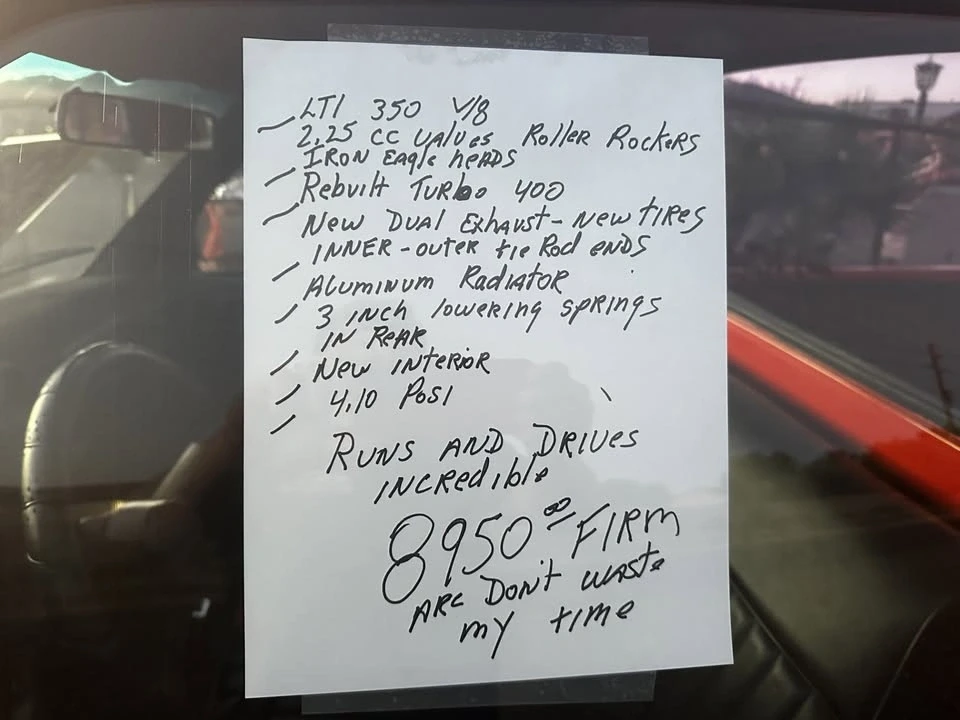 LT1 350 V/8
2.25 CC valves Roller Rockers
IRON Eagle heads
Rebuilt Turbo 400
New Dual Exhaust - New tires
INNER - outer tie Rod ends
Aluminum Radiator
3 inch lowering springs
in Rear
New interior
4.10 Posi
Runs and Drives
incredible
8950 00 Firm
Don't waste
my time